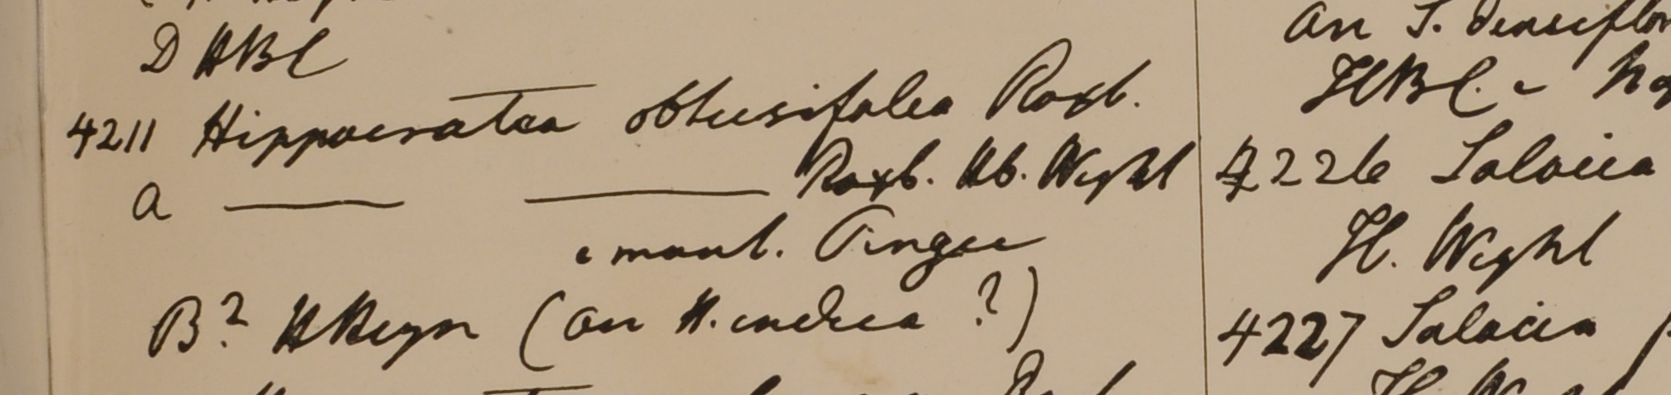 D HBC
4211 Hippocratea obtusifolia Roxb.
a ——— ——— Roxb. Hb. Wight
e mont. Pingee
B? HHeyn (an H. indica ?)
an S.
HBC.
4226 Salacia
H. Wight
4227 Salacia